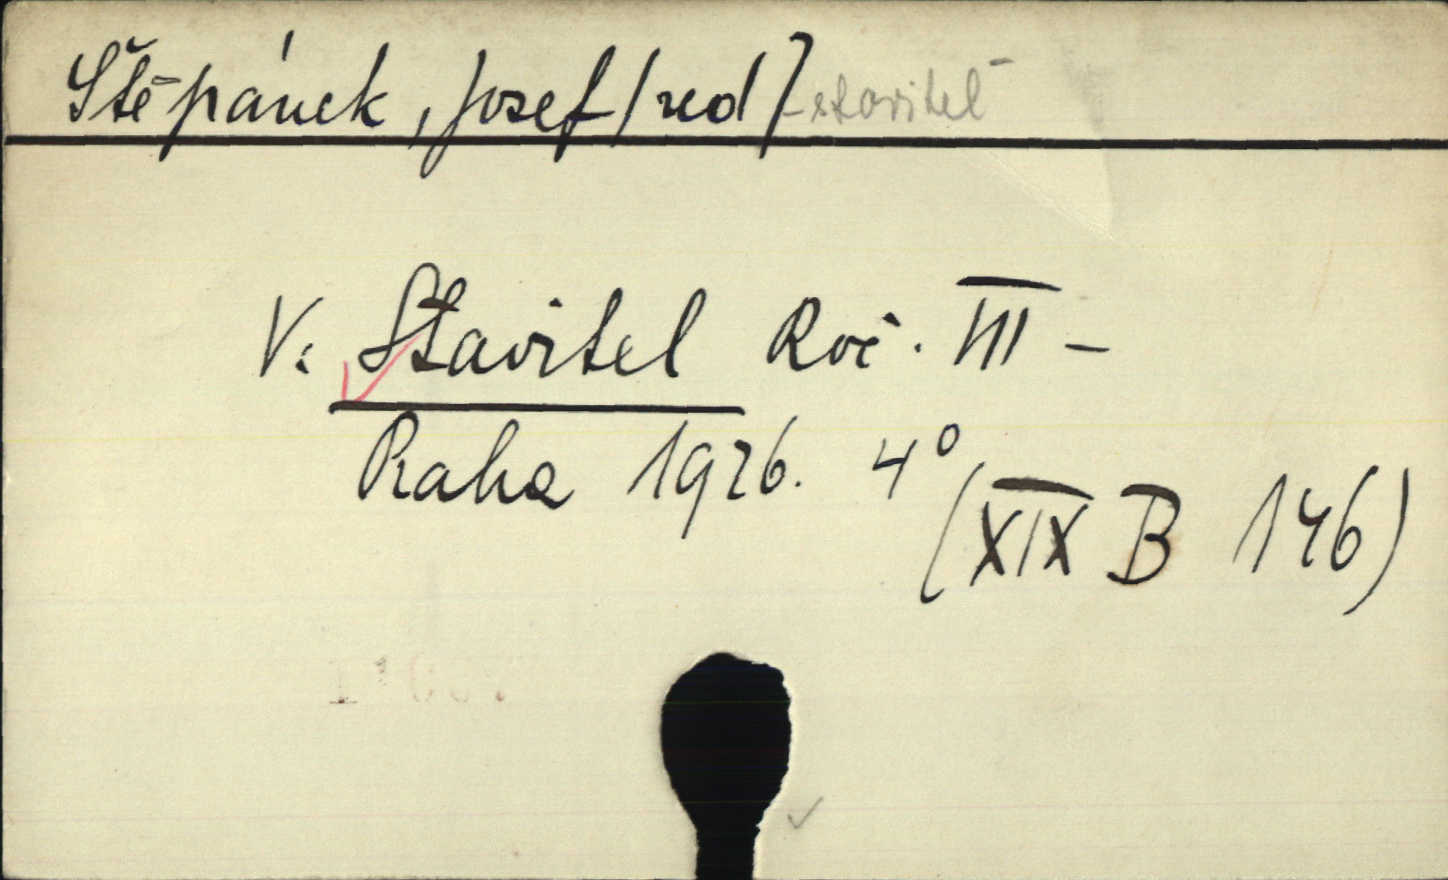 Štěpánek, Josef /red/ - stavitel
V: Stavitel Roč. VII -
Praha 1926. 4°
(XIX B 146)